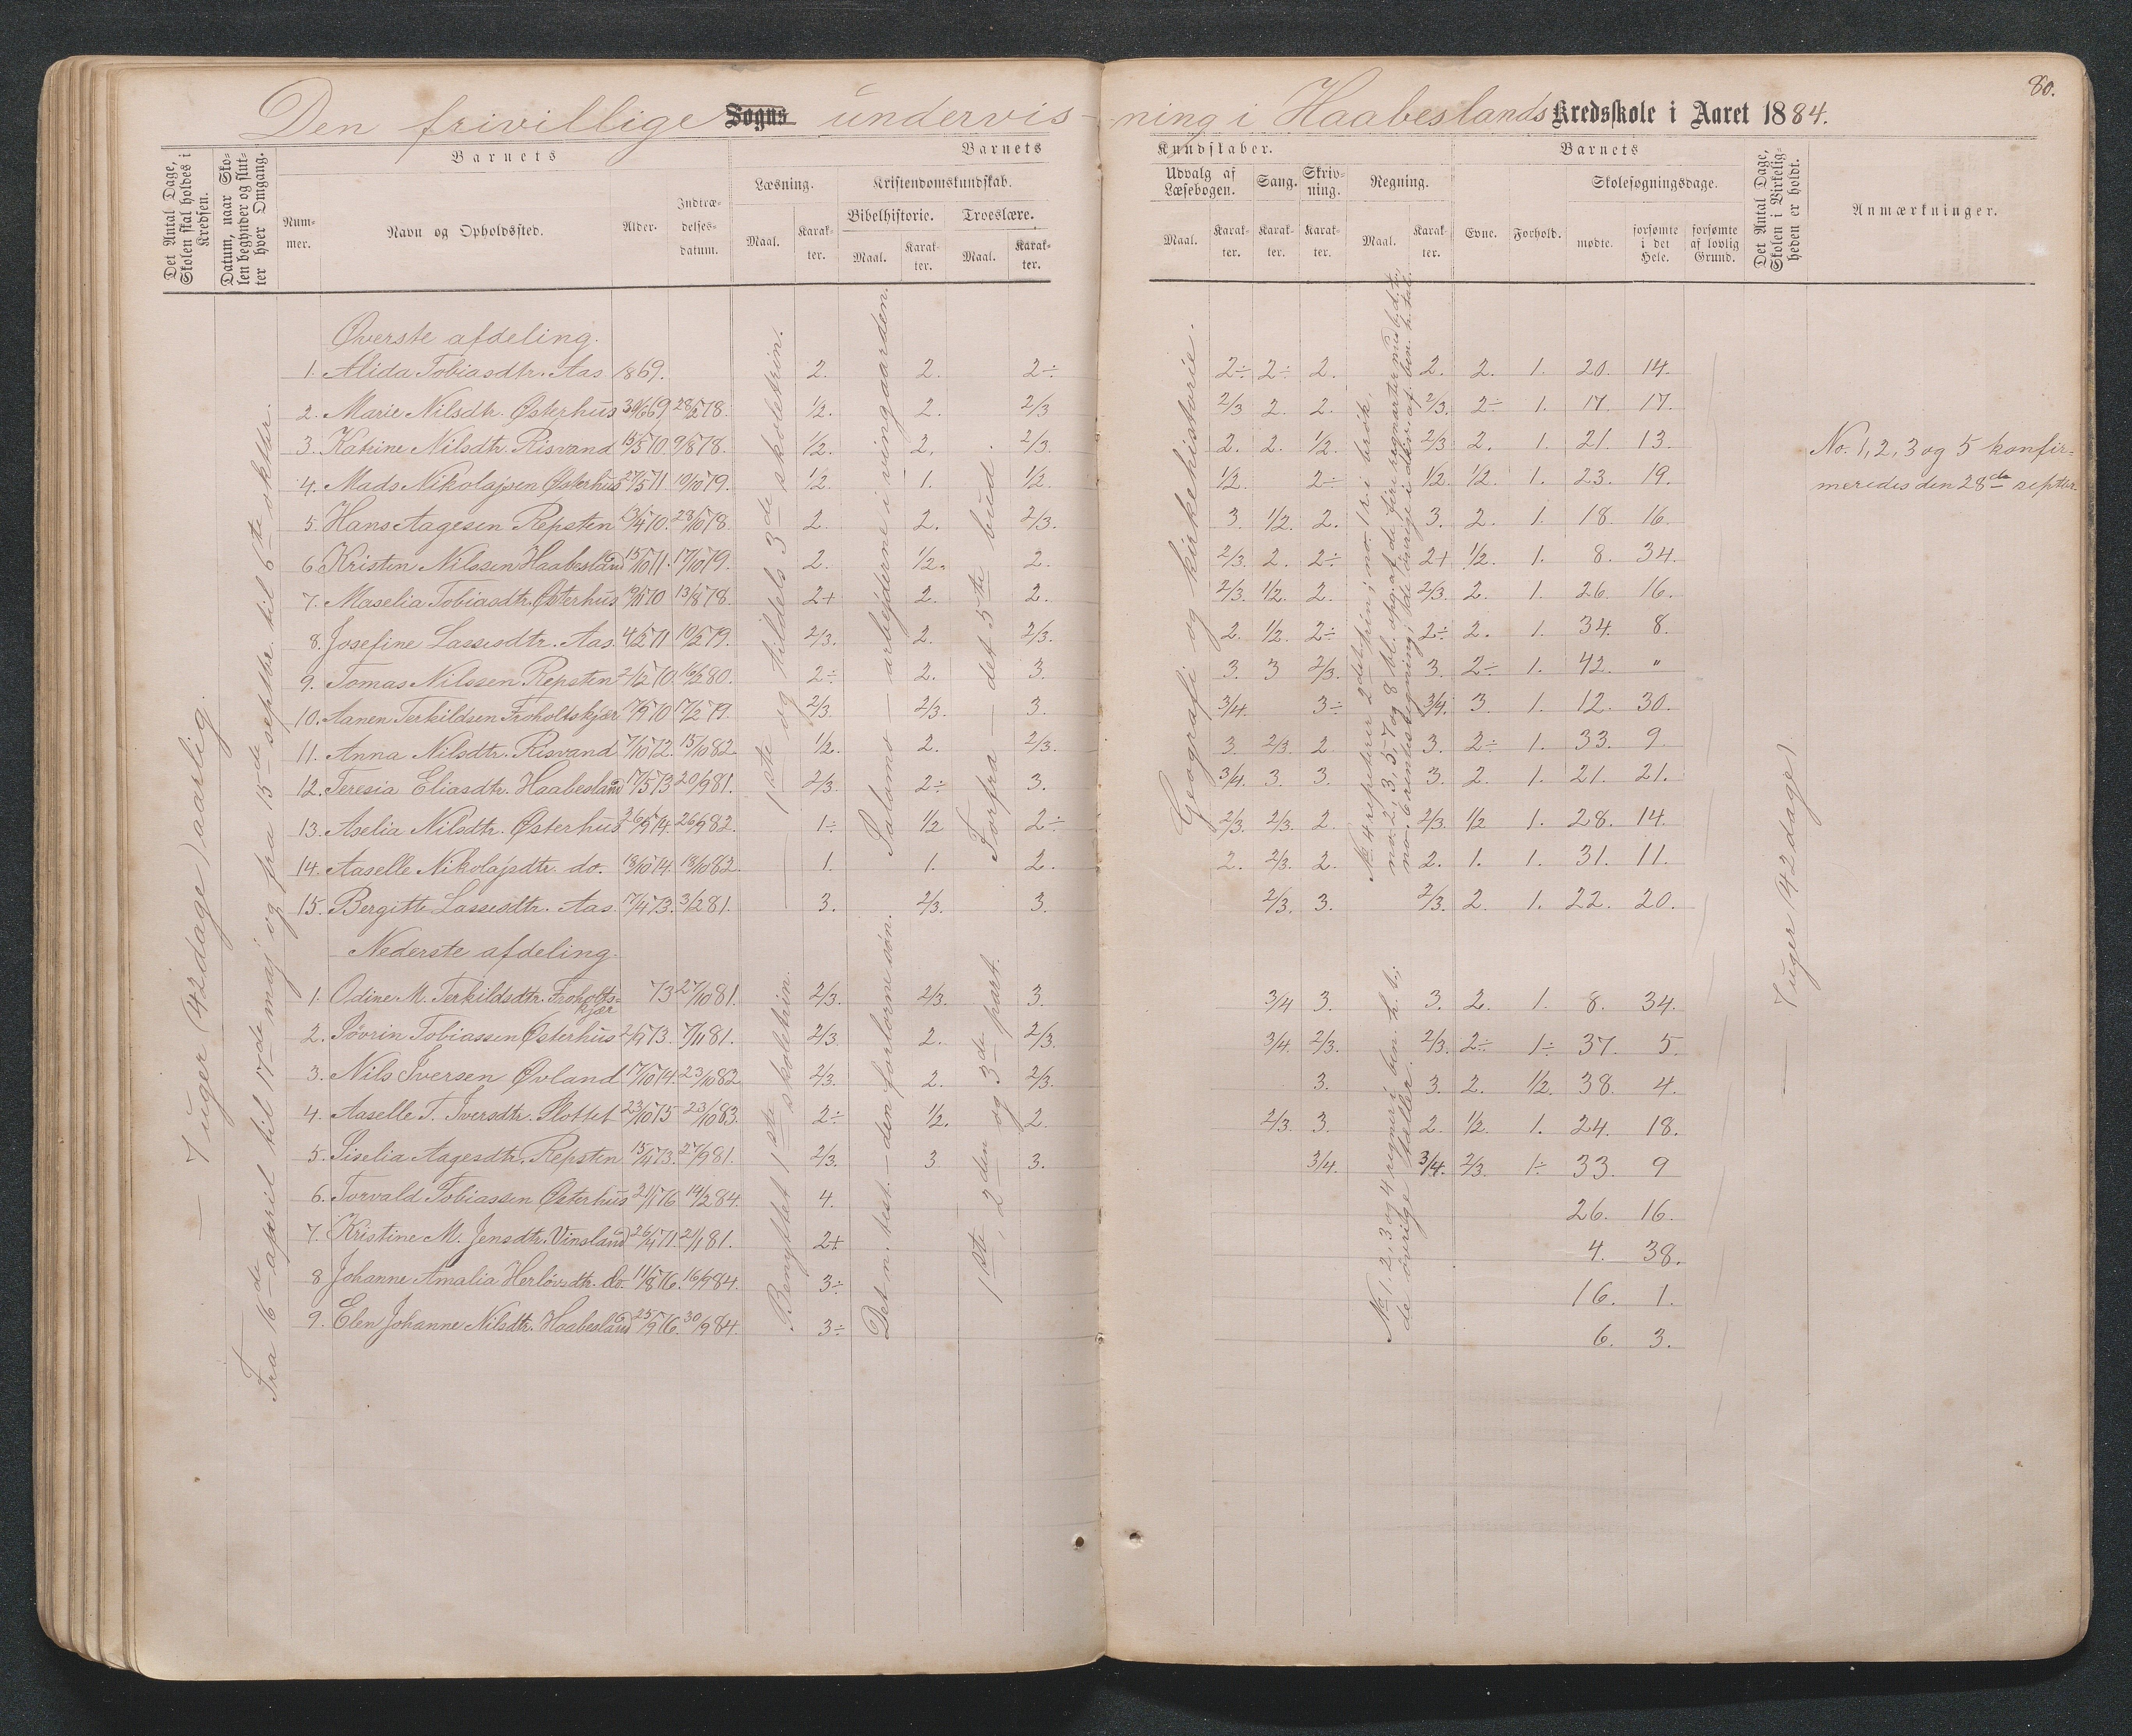 80.
Den frivillige Sogns undervis- ning i Haabeslands Kredsskole i Aaret 1884.
Det Antal Dage, Skolen skal holdes i Kredsen.
Datum, naar Skolen begynder og slutter hver Omgang.
Barnets
Barnets
Kundskaber.
Barnets
Nummer.
Navn og Opholdssted.
Alder.
Indtrædelsesdatum.
Læsning.
Kristendomskundskab.
Bibelhistorie.
Troeslære.
Maal. Karakter. Maal. Karakter. Maal. Karakter.
Udvalg af Læsebogen.
Sang.
Skrivning.
Regning.
Maal. Karakter. Karakter. Karakter. Maal. Karakter.
Evne.
Forhold.
Skolesøgningsdage.
mødte.
forsømte i det Hele.
forsømte af lovlig Grund.
Det Antal Dage, Skolen i Virkeligheden er holdt.
Anmærkninger.
7 uger (42 dage) aarlig
Fra 16de april til 17de maj og fra 15de septbr. til 6te oktbr.
1ste og tildels 3de skoletrin.
Salomo — arbejderne i vingaarden.
Forfra — det 5te bud.
Geografi og kirkehistorie.
7 uger (42 dage)
Øverste afdeling.
1. Alida Tobiasdtr. Aas 1869. 2. 2. 2÷ 2÷ 2÷ 2. 2. 2. 1. 20. 14.
2. Marie Nilsdtr. Østerhus 30/6 69 28/2 78. 1/2. 2. 2/3 2/3 2. 2. 2/3. 2÷ 1. 17. 17.
3. Katrine Nilsdtr. Risvand 15/5 70. 9/8 78. 1/2. 2. 2/3. 2. 2. 1/2. 2/3 2. 1. 21. 13.
4. Mads Nikolajsen Østerhus 27/5 71 10/10 79. 1/2. 1. 1/2. 1/2. 2÷ 1/2. 1/2. 1. 23. 19.
5. Hans Aagesen Repsten 13/4 70. 28/10 78. 2. 2. 2/3. 3. 1/2. 2. 3. 2. 1. 18. 16.
6. Kristen Nilssen Haabesland 15/10 71. 17/10 79. 2. 1/2. 2. 2/3. 2. 2÷ 2+ 1/2. 1. 8. 34.
7. Maselia Tobiasdtr. Østerhus 19/11 70 13/8 78. 2+ 2. 2. 2/3. 1/2. 2. 2/3. 2. 1. 26. 16.
8. Josefine Lassesdtr. Aas. 4/2 71 10/2 79. 2/3. 2. 2/3. 2. 1/2. 2÷ 2÷ 2. 1. 34. 8.
9. Tomas Nilssen Repsten 21/2 70. 16/2 80. 2÷ 2. 3. 3. 3 2/3. 3. 2÷ 1. 42. "
10. Aanen Terkildsen Froholtskjær 17/9 70 17/2 79. 2/3. 2/3. 3. 3/4. 3÷ 3/4. 3. 1. 12. 30.
11. Anna Nilsdtr. Risvand 7/10 72. 15/10 82. 1/2. 2. 2/3. 3. 2/3. 2 3. 2÷ 1. 33. 9.
12. Teresia Eliasdtr. Haabesland 17/5 73 20/9 81. 2/3. 2÷ 3. 3/4 3. 3. 3. 2. 1. 21. 21.
13. Aselia Nilsdtr. Østerhus 26/9 74. 26/9 82. 1÷ 1/2 2÷ 2/3. 2/3. 2. 2/3. 1/2 1. 28. 14.
14. Aaselle Nikolajsdtr. do. 18/10 74. 18/10 82. 1. 1. 2. 2. 2/3. 2. 2. 1. 1. 31. 11.
15. Bergitte Lassesdtr. Aas. 17/4 73. 3/2 81. 3. 2/3. 3. 2/3. 3. 2/3. 2. 1. 22. 20.
No. 1, 2, 3 og 5 konfir=
meredes den 28de septbr.
Nederste afdeling.
Benyttet 1ste skoletrin.
Det n. test. — den fortorne søn.
1ste, 2den og 3de part.
No 1. 2, 3 og 4 regner i ben. h. t.;
de øvrige tæller.
1. Odine M. Terkildsdtr. Froholts=
kjær 73 27/10 81. 2/3. 2/3. 3. 3/4 3. 3. 2. 1. 8. 34.
2. Søvrin Tobiassen Østerhus 73. 7/11 81. 2/3 2. 2/3. 3/4. 2/3. 2/3. 2÷ 1÷ 37. 5.
3. Nils Iversen Øvland 17/10 74. 23/10 82 2/3. 2. 2/3. 3. 3. 2. 1/2. 38. 4.
4. Aaselle T. Iversdtr. Slottet 23/10 75 23/10 83. 2÷ 1/2. 2. 2/3. 3. 2. 1/2. 1. 24. 18.
5. Siselia Aagesdtr. Repsten 15/4 73. 27/9 81. 2/3. 3 3. 3/4. 3/4. 2/3. 1÷ 33. 9
6. Torvald Tobiassen Østerhus 21/1 76 14/2 84. 4. 26. 16.
7. Kristine M. Jensdtr. Vinsland 26/4 71. 21/1 81. 2+ 4. 38.
8 Johanne Amalia Herlövsdtr. do. 11/8 76. 16/9 84. 3÷ 16. 1.
9. Elen Johanne Nilsdtr. Haabesland 25/9 76. 30/9 84. 3÷ 6. 3.